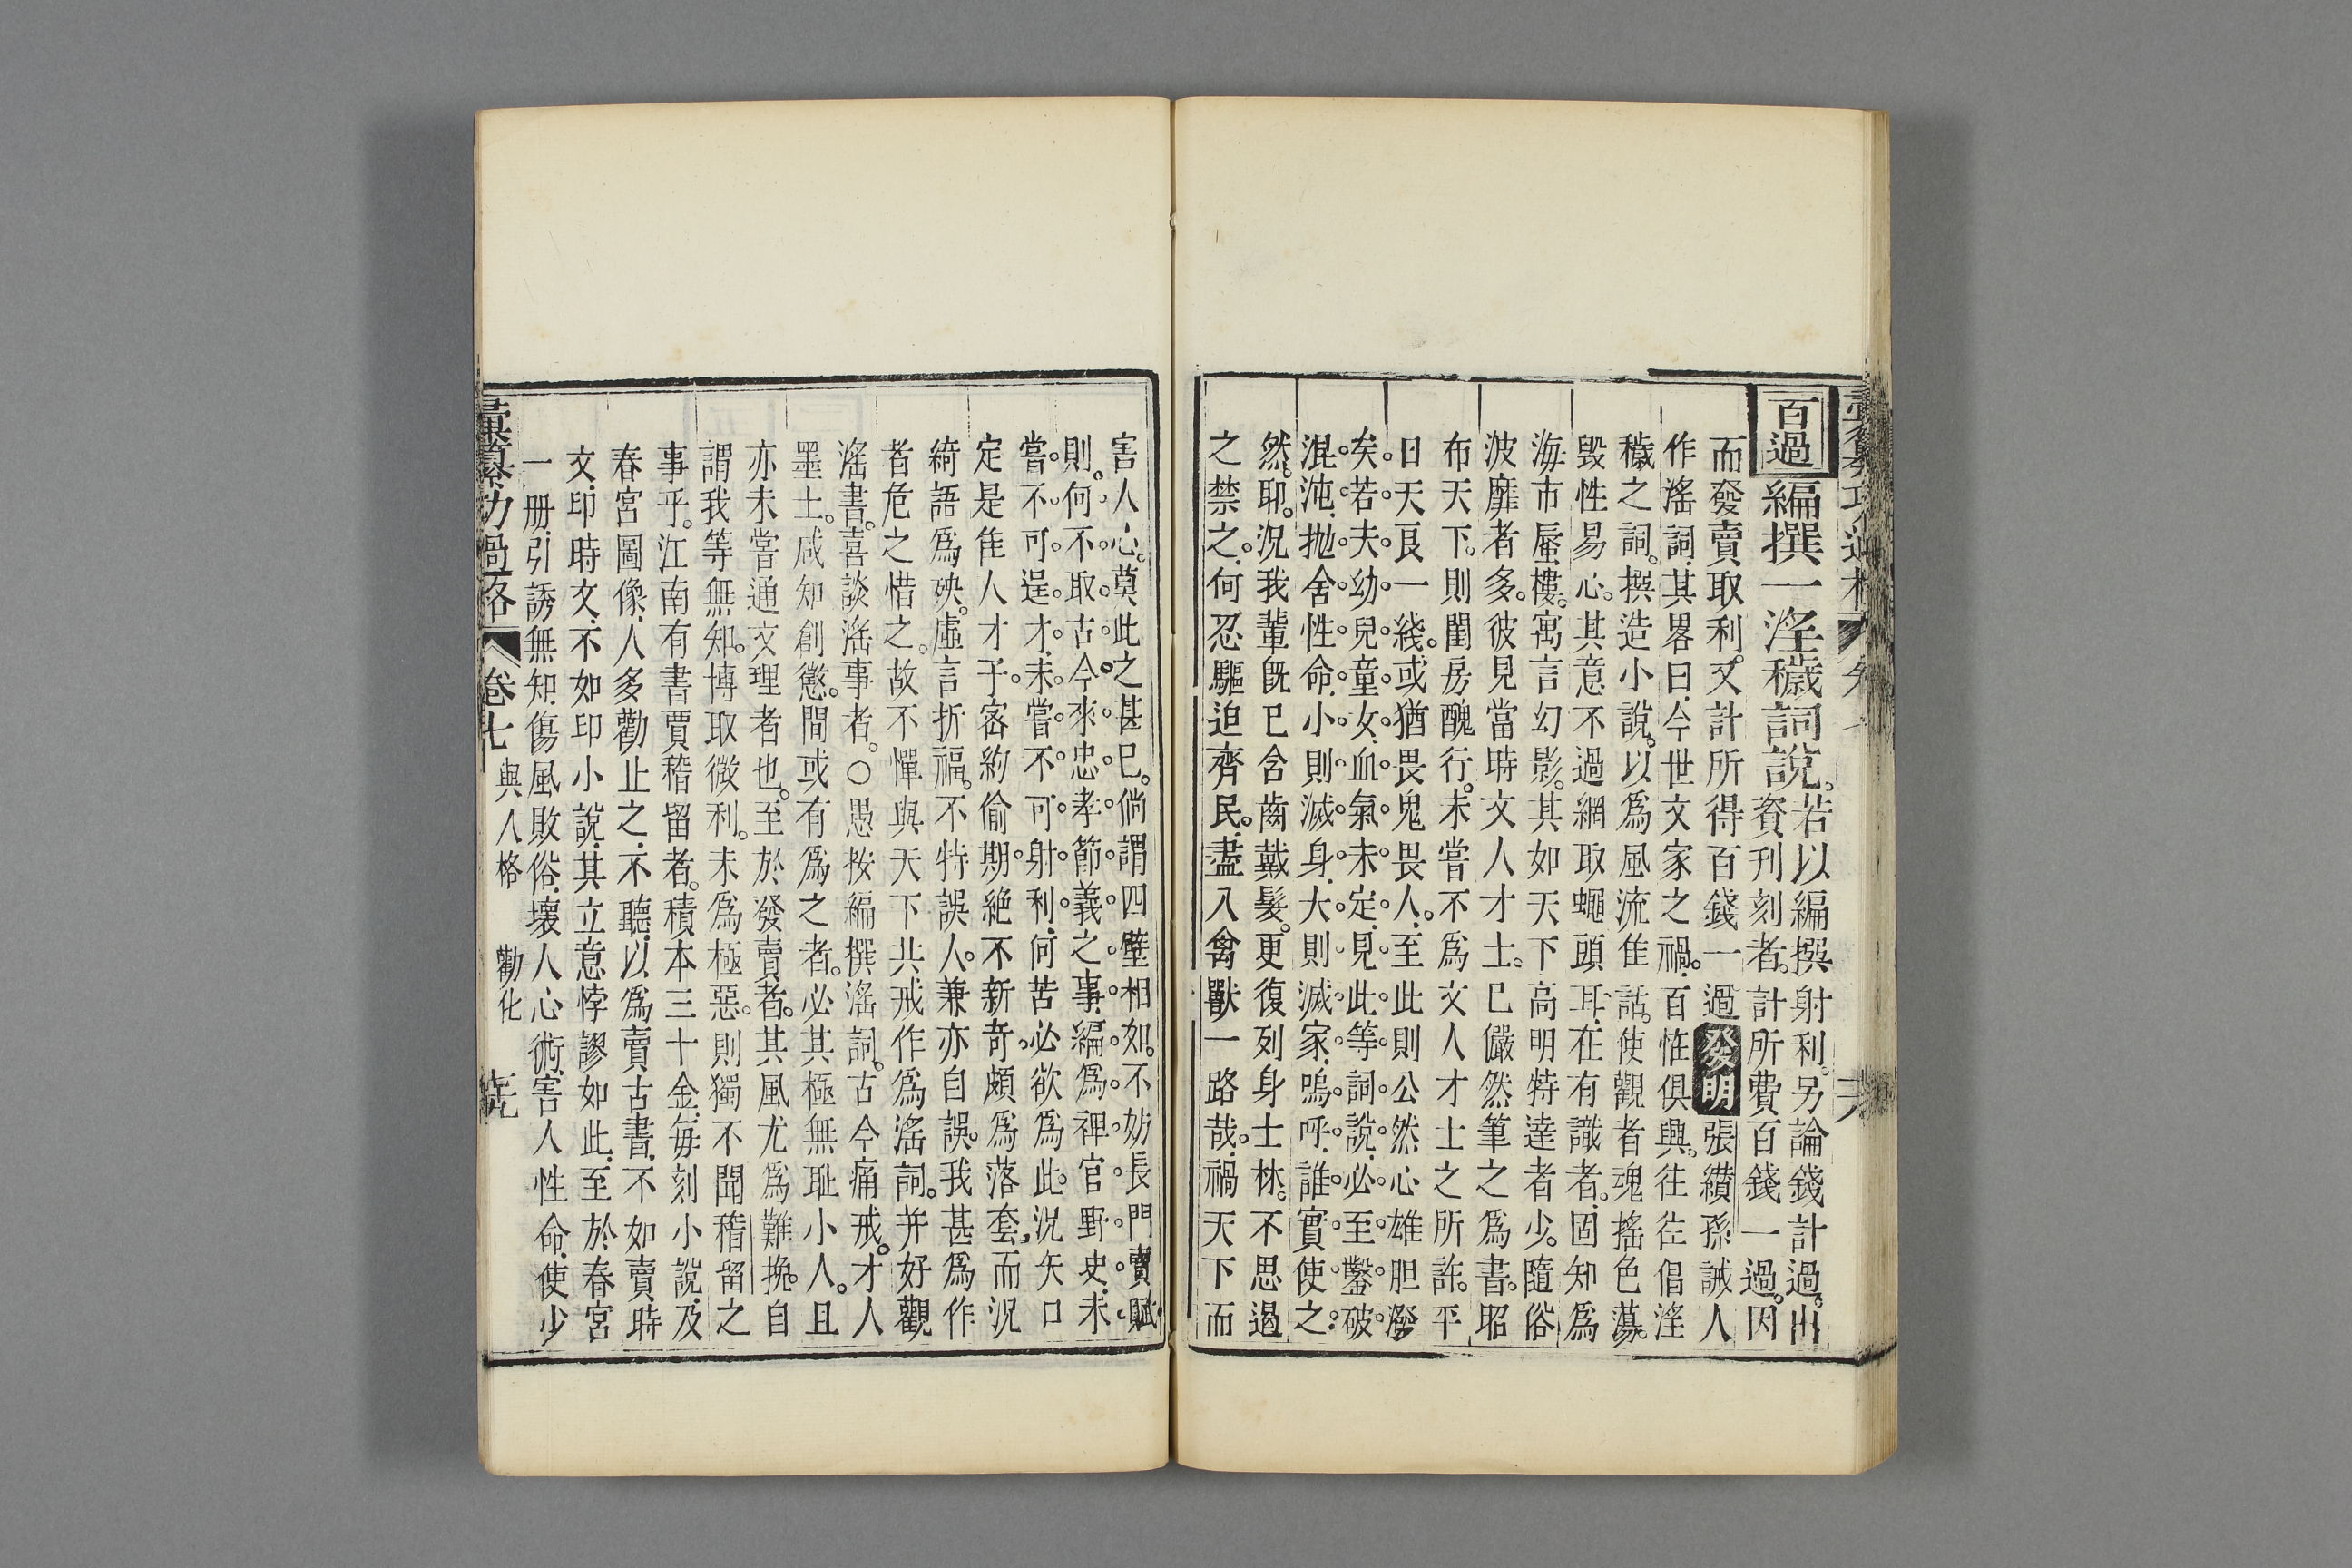 百過
編撰一淫穢詞說。若以編撰射利。另論錢計過。出
資刊刻者。計所費百錢一過。因
而發賣取利。又計所得百錢一過 發明 張纘孫誡人
作滛詞。其畧曰。今世文家之禍。百恠俱興。往往倡淫
穢之詞。撰造小說。以爲風流隹話。使觀者魂搖色蕩。
毀性易心。其意不過網取蠅頭耳。在有識者。固知爲
海市蜃樓。寓言幻影。其如天下高明特達者少。隨俗
波靡者多。彼見當時文人才士。已儼然筆之爲書。昭
布天下。則閨房醜行。未嘗不爲文人才士之所許。平
日天良一綫。或猶畏鬼畏人。至此則公然心雄胆潑
矣。若夫幼兒童女。血氣未定。見此等詞說。必至鑿破
混沌。抛舍性命。小則滅身。大則滅家。嗚呼。誰實使之
然耶。況我輩旣已含齒戴髮。更復列身士林。不思遏
之禁之。何忍驅迫齊民。盡入禽獸一路哉。禍天下而
害人心。莫此之甚已。倘謂四壁相如。不妨長門賣賦。
則何不取古今來忠孝節義之事。編爲稗官野史。未
嘗不可逞才。未嘗不可射利。何苦必欲爲此。況矢口
定是隹人才子。密約偷期。絶不新奇。頗爲落套。而況
綺語爲殃。虛言折福。不特誤人。兼亦自誤。我甚爲作
者危之惜之。故不憚與天下共戒作爲滛詞。并好觀
滛書。喜談滛事者。○愚按編撰滛詞。古今痛戒。才人
墨士。咸知創懲。間或有爲之者。必其極無耻小人。且
亦未嘗通文理者也。至於發賣者。其風尤爲難挽。自
謂我等無知。博取微利。未爲極惡。則獨不聞稽留之
事乎。江南有書賈稽留者。積本三十金。每刻小說。及
春宮圖像。人多勸止之。不聽。以爲賣古書。不如賣時
文。印時文。不如印小說。其立意悖謬如此。至於春宮
一册。引誘無知。傷風敗俗。壞人心術。害人性命。使少
彙纂功過格 卷七 與人格 勸化